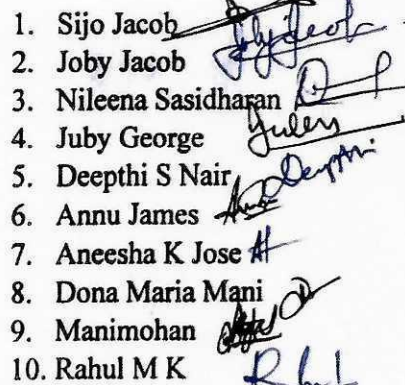 1. Sijo Jacob
2. Joby Jacob
3. Nileena Sasidharan
4. Juby George
5. Deepthi S Nair Deepthi
6. Annu James
7. Aneesha K Jose
8. Dona Maria Mani
9. Manimohan
10. Rahul M K